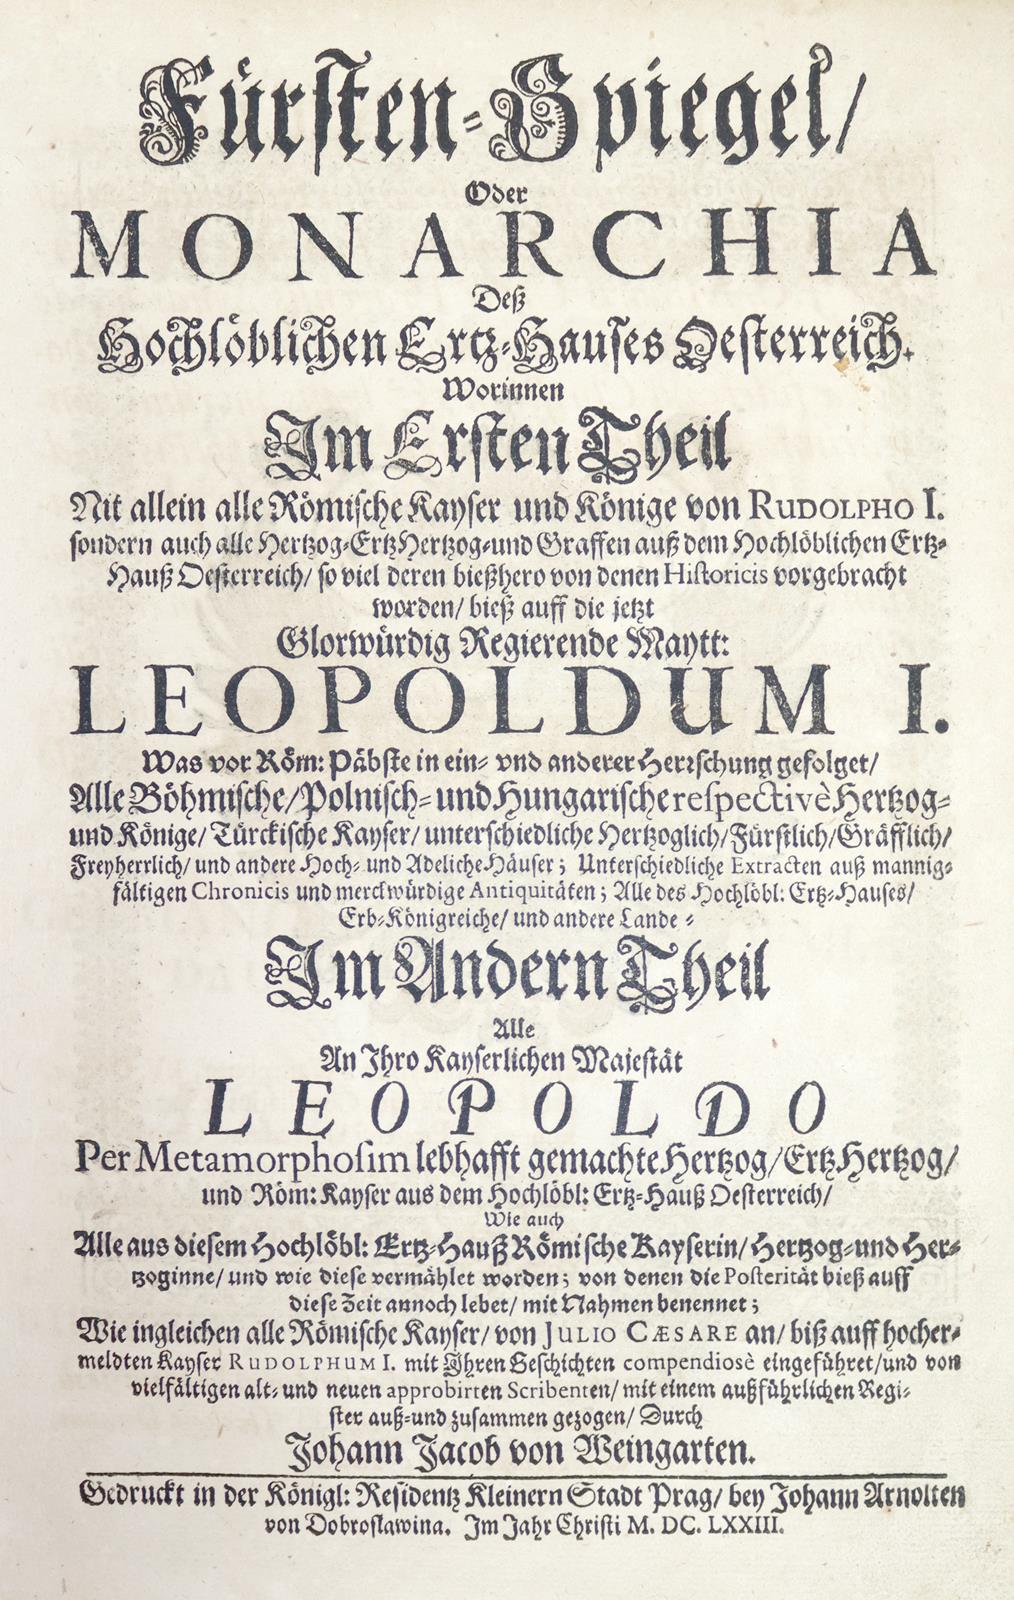 Fürsten-Spiegel/
Oder
MONARCHIA
Deß
Hochlöblichen Ertz-Hauses Oesterreich.
Worinnen
Im Ersten Theil
Nit allein alle Römische Kayser und Könige von RUDOLPHO I.
sondern auch alle Hertzog-ErtzHertzog-und Graffen auß dem Hochlöblichen Ertz-
Hauß Oesterreich/ so viel deren bießhero von denen Historicis vorgebracht
worden/ bieß auff die jetzt
Glorwürdig Regierende Maytt:
LEOPOLDUM I.
Was vor Röm: Päbste in ein- vnd anderer Herrschung gefolget/
Alle Böhmische/Polnisch- und Hungarische respectivè Hertzog-
und Könige/ Türckische Kayser/ unterschiedliche Hertzoglich/Fürstlich/Gräfflich/
Freyherrlich/ und andere Hoch- und Adeliche Häuser; Unterschiedliche Extracten auß mannig-
fältigen Chronicis und merckwürdige Antiquitäten; Alle des Hochlöbl: Ertz-Hauses/
Erb-Königreiche/ und andere Lande-
Im Andern Theil
Alle
An Ihro Kayserlichen Majestät
LEOPOLDO
Per Metamorphosim lebhafft gemachte Hertzog/ErtzHertzog/
und Röm: Kayser aus dem Hochlöbl: Ertz-Hauß Oesterreich/
Wie auch
Alle aus diesem Hochlöbl: Ertz-Hauß Römische Kayserin/ Hertzog-und Her-
tzoginne/ und wie diese vermählet worden; von denen die Posterität bieß auff
diese Zeit annoch lebet/ mit Nahmen benennet;
Wie ingleichen alle Römische Kayser/ von JULIO CÆSARE an/ biß auff hocher-
meldten Kayser RUDOLPHUM I. mit Ihren Geschichten compendiosè eingeführet/und von
vielfältigen alt- und neuen approbirten Scribenten/ mit einem außführlichen Regi-
ster auß-und zusammen gezogen/ Durch
Johann Jacob von Weingarten.
Gedruckt in der Königl: Residentz Kleinern Stadt Prag/ bey Johann Arnolten
von Dobroslawina. Im Jahr Christi M. DC. LXXIII.